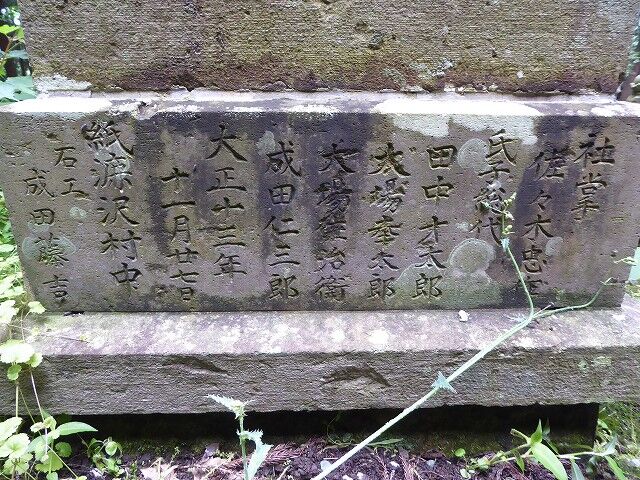 社掌
佐々木忠
氏子総代
田中才太郎
大場幸太郎
大場佐治衛
成田仁三郎
大正十三年
十一月廿七日
紙漉沢村中
石工
成田藤吉